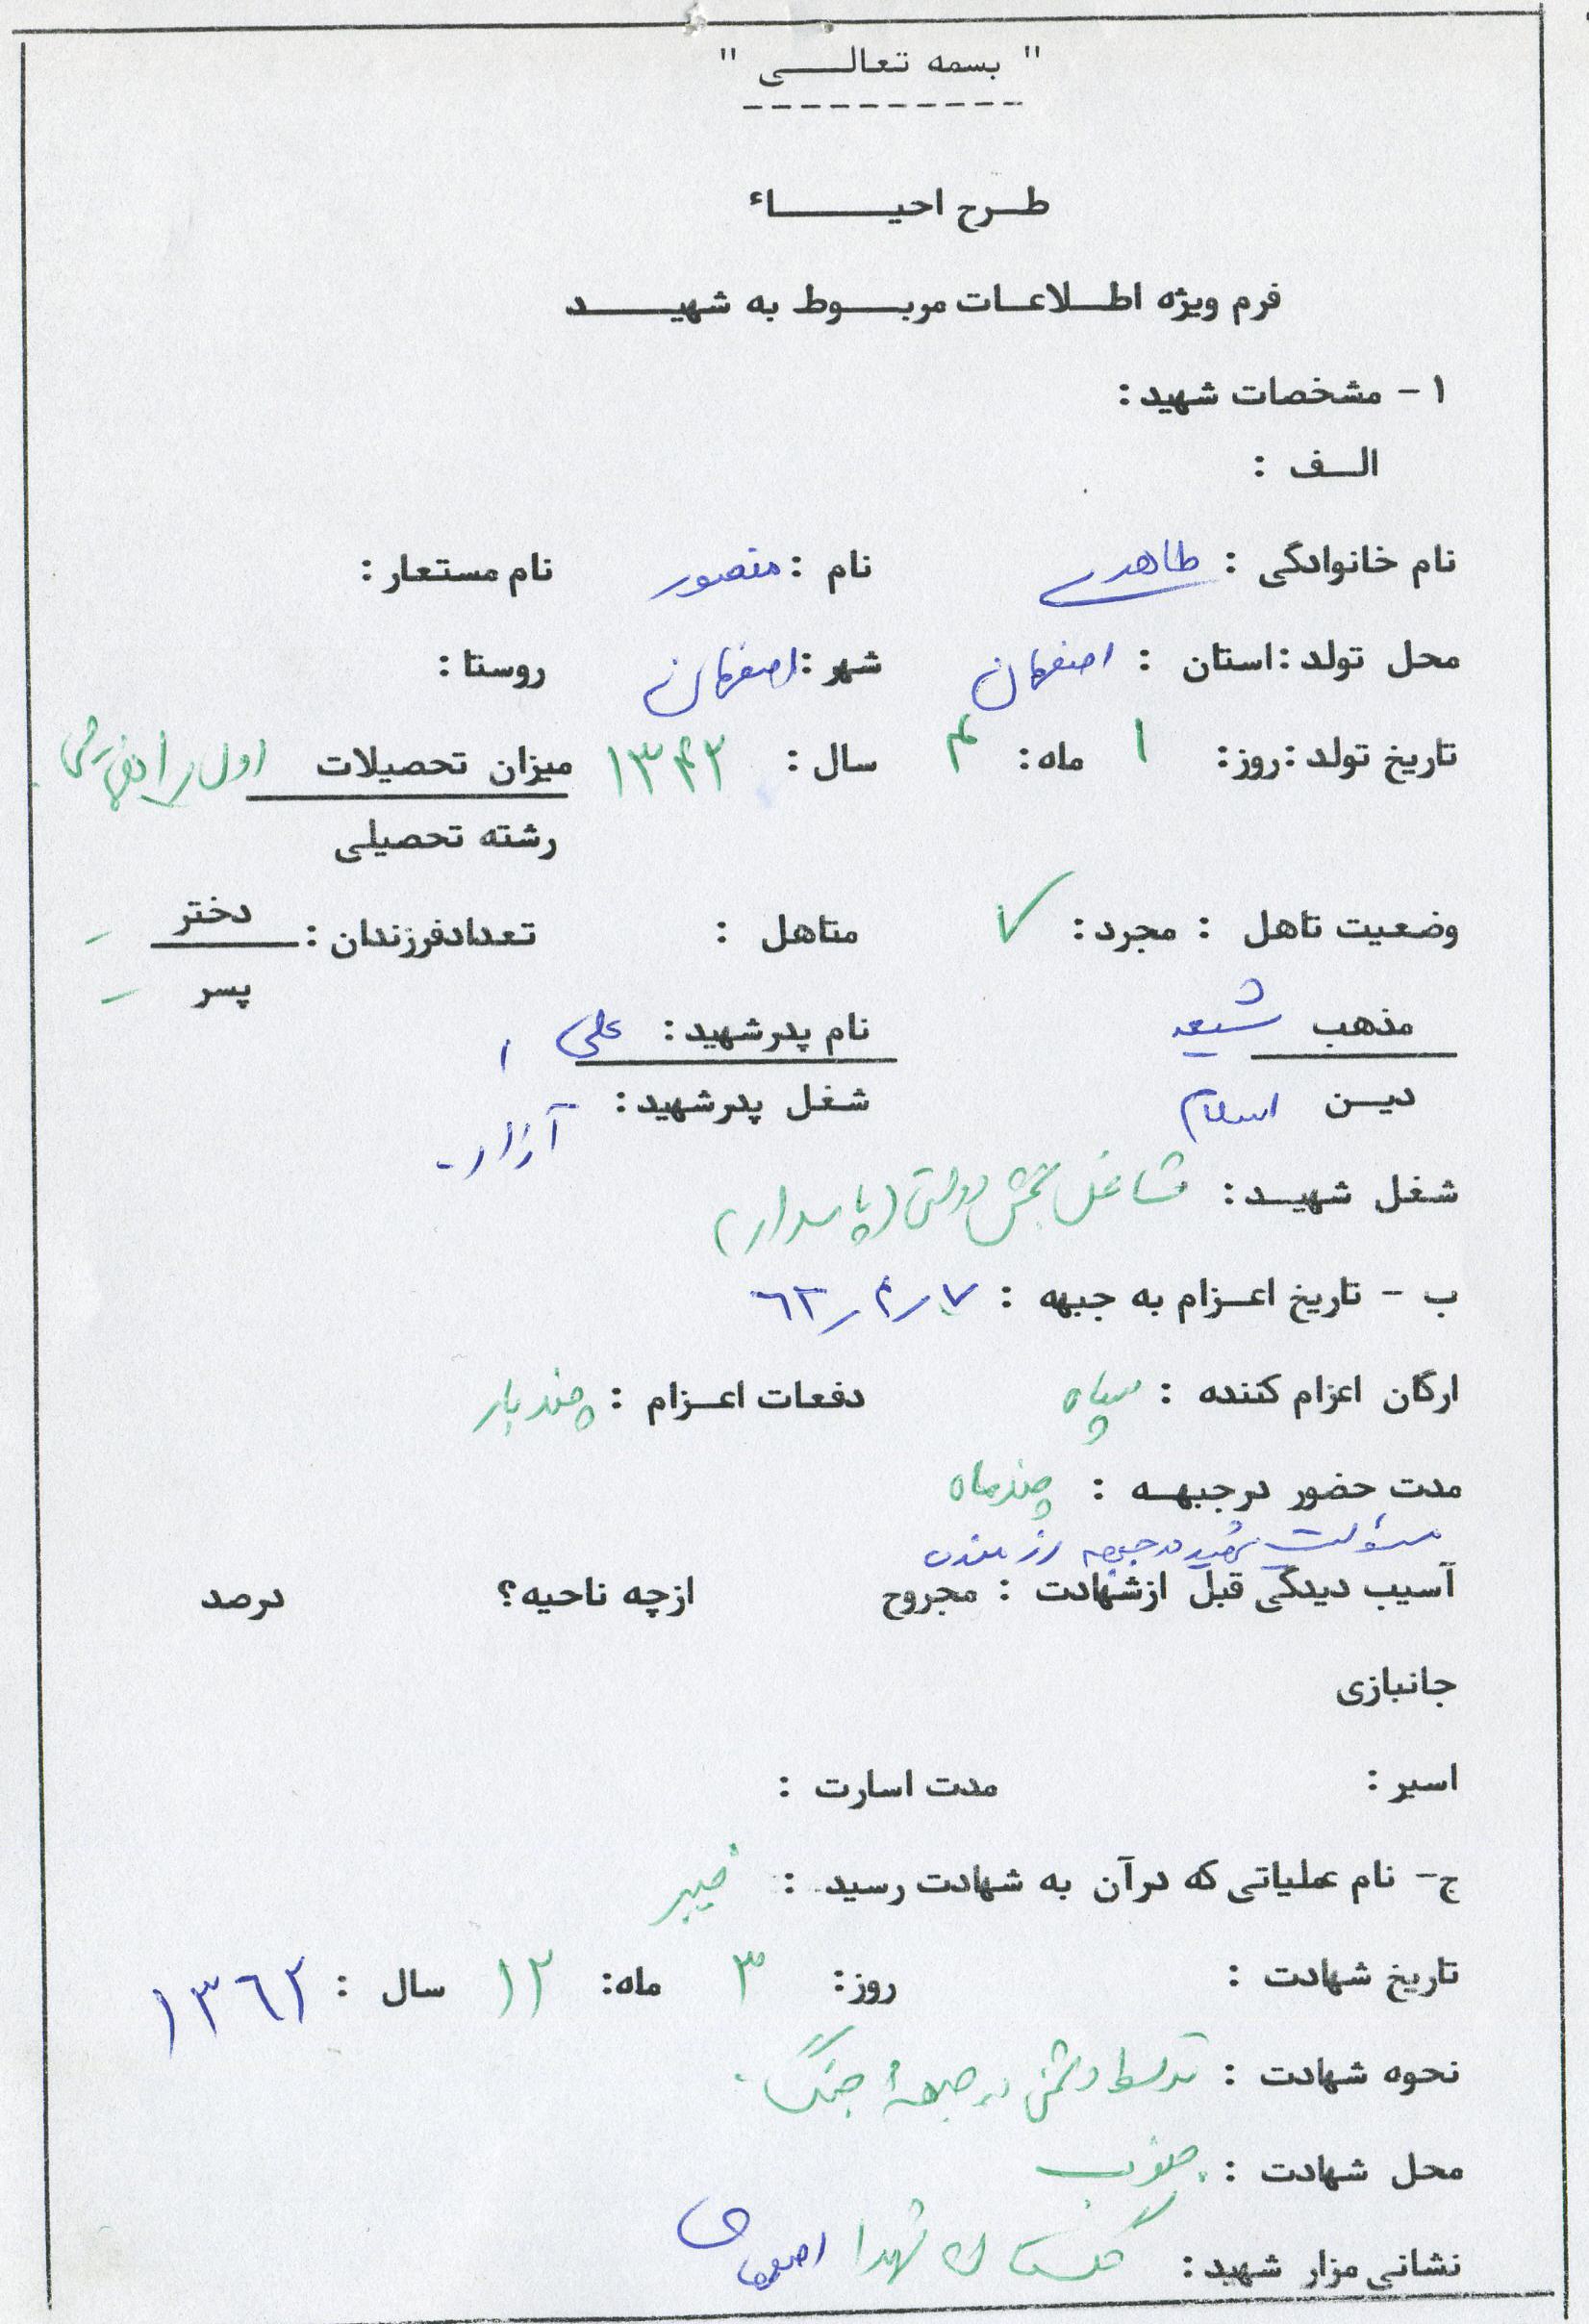 " بسمه تعالی "
طرح احیاء
فرم ویژه اطلاعات مربوط به شهید
۱ - مشخصات شهید :
الف :
نام خانوادگی : طاهری نام : منصور نام مستعار :
محل تولد : استان : اصفهان شهر : اصفهان روستا :
تاریخ تولد : روز : ۱ ماه : ۴ سال : ۱۳۴۲ میزان تحصیلات اول راهنمایی
رشته تحصیلی
وضعیت تاهل : مجرد : ✓ متاهل : تعداد فرزندان : دختر -
پسر -
مذهب شیعه نام پدر شهید : علی
دین اسلام شغل پدر شهید : آزاد
شغل شهید : شاغل بخش دولتی (پاسدار)
ب - تاریخ اعزام به جبهه : ۷/۴/۶۲
ارگان اعزام کننده : سپاه دفعات اعزام : چند بار
مدت حضور در جبهه : چند ماه
مسئولیت شهید در جبهه رزمنده
آسیب دیدگی قبل از شهادت : مجروح از چه ناحیه؟ درصد
جانبازی
اسیر : مدت اسارت :
ج - نام عملیاتی که در آن به شهادت رسید : خیبر
تاریخ شهادت : روز : ۳ ماه : ۱۲ سال : ۱۳۶۲
نحوه شهادت : توسط دشمن در جبهه جنگ.
محل شهادت : جنوب
نشانی مزار شهید : گلستان شهدا اصفهان